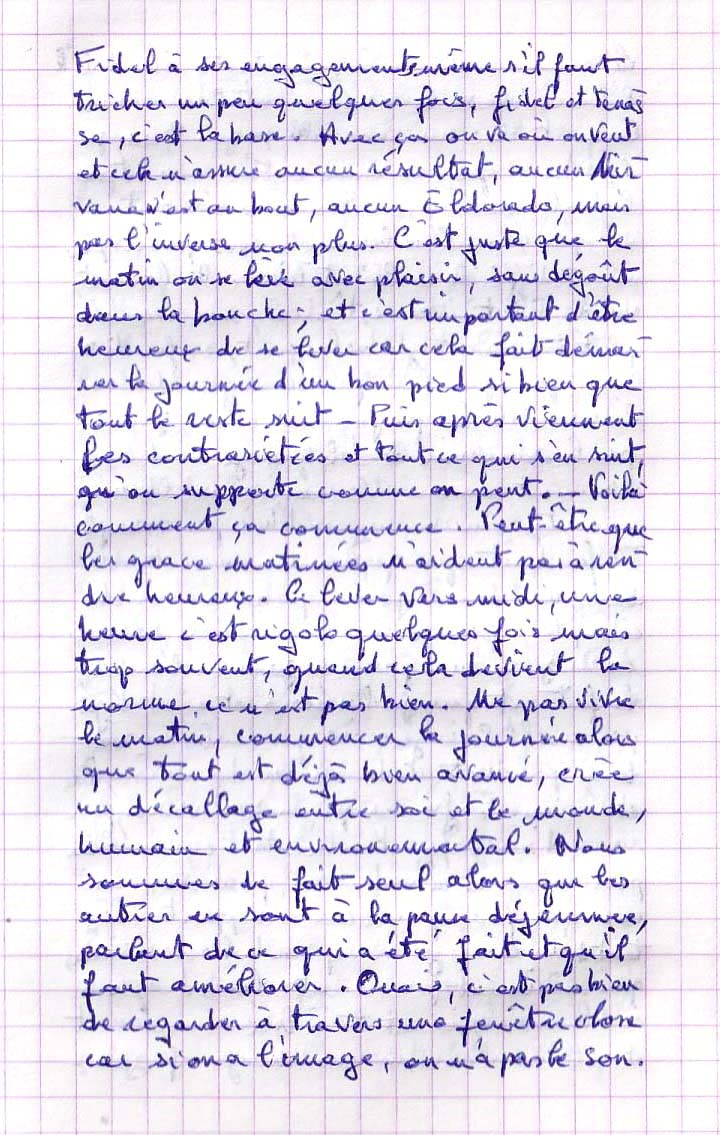 Fidel à ses engagements même s'il faut
tricher un peu quelques fois, fidel et tena
se, c'est la base. Avec ça on va où on veut
et cela n'assure aucun résultat, aucun Nir-
vana n'est au bout, aucun Eldorado, mais
pas l'inverse non plus. C'est juste que le
matin on se lève avec plaisir, sans dégoût
dans la bouche ; et c'est important d'être
heureux de se lever car cela fait démar-
rer la journée d'un bon pied si bien que
tout le reste suit - Puis après viennent
les contrariétiés et tout ce qui s'en suit,
qu'on supporte comme on peut. - Voilà
comment ça commence. Peut-être que
les grace matinées n'aident pas à ren-
dre heureux. Ce lever vers midi, une
heure c'est rigolo quelques fois mais
trop souvent, quand cela devient la
norme, ce n'est pas bien. Ne pas vivre
le matin, commencer la journée alors
que tout est déjà bien avancé, crée
un décallage entre soi et le monde,
humain et environemental. Nous
sommes de fait seul alors que les
autres en sont à la pause déjeunée,
parlent de ce qui a été fait et qu'il
faut améliorer. Ouais, c'est pas bien
de regarder à travers une fenêtre close
car si on a l'image, on n'a pas le son.